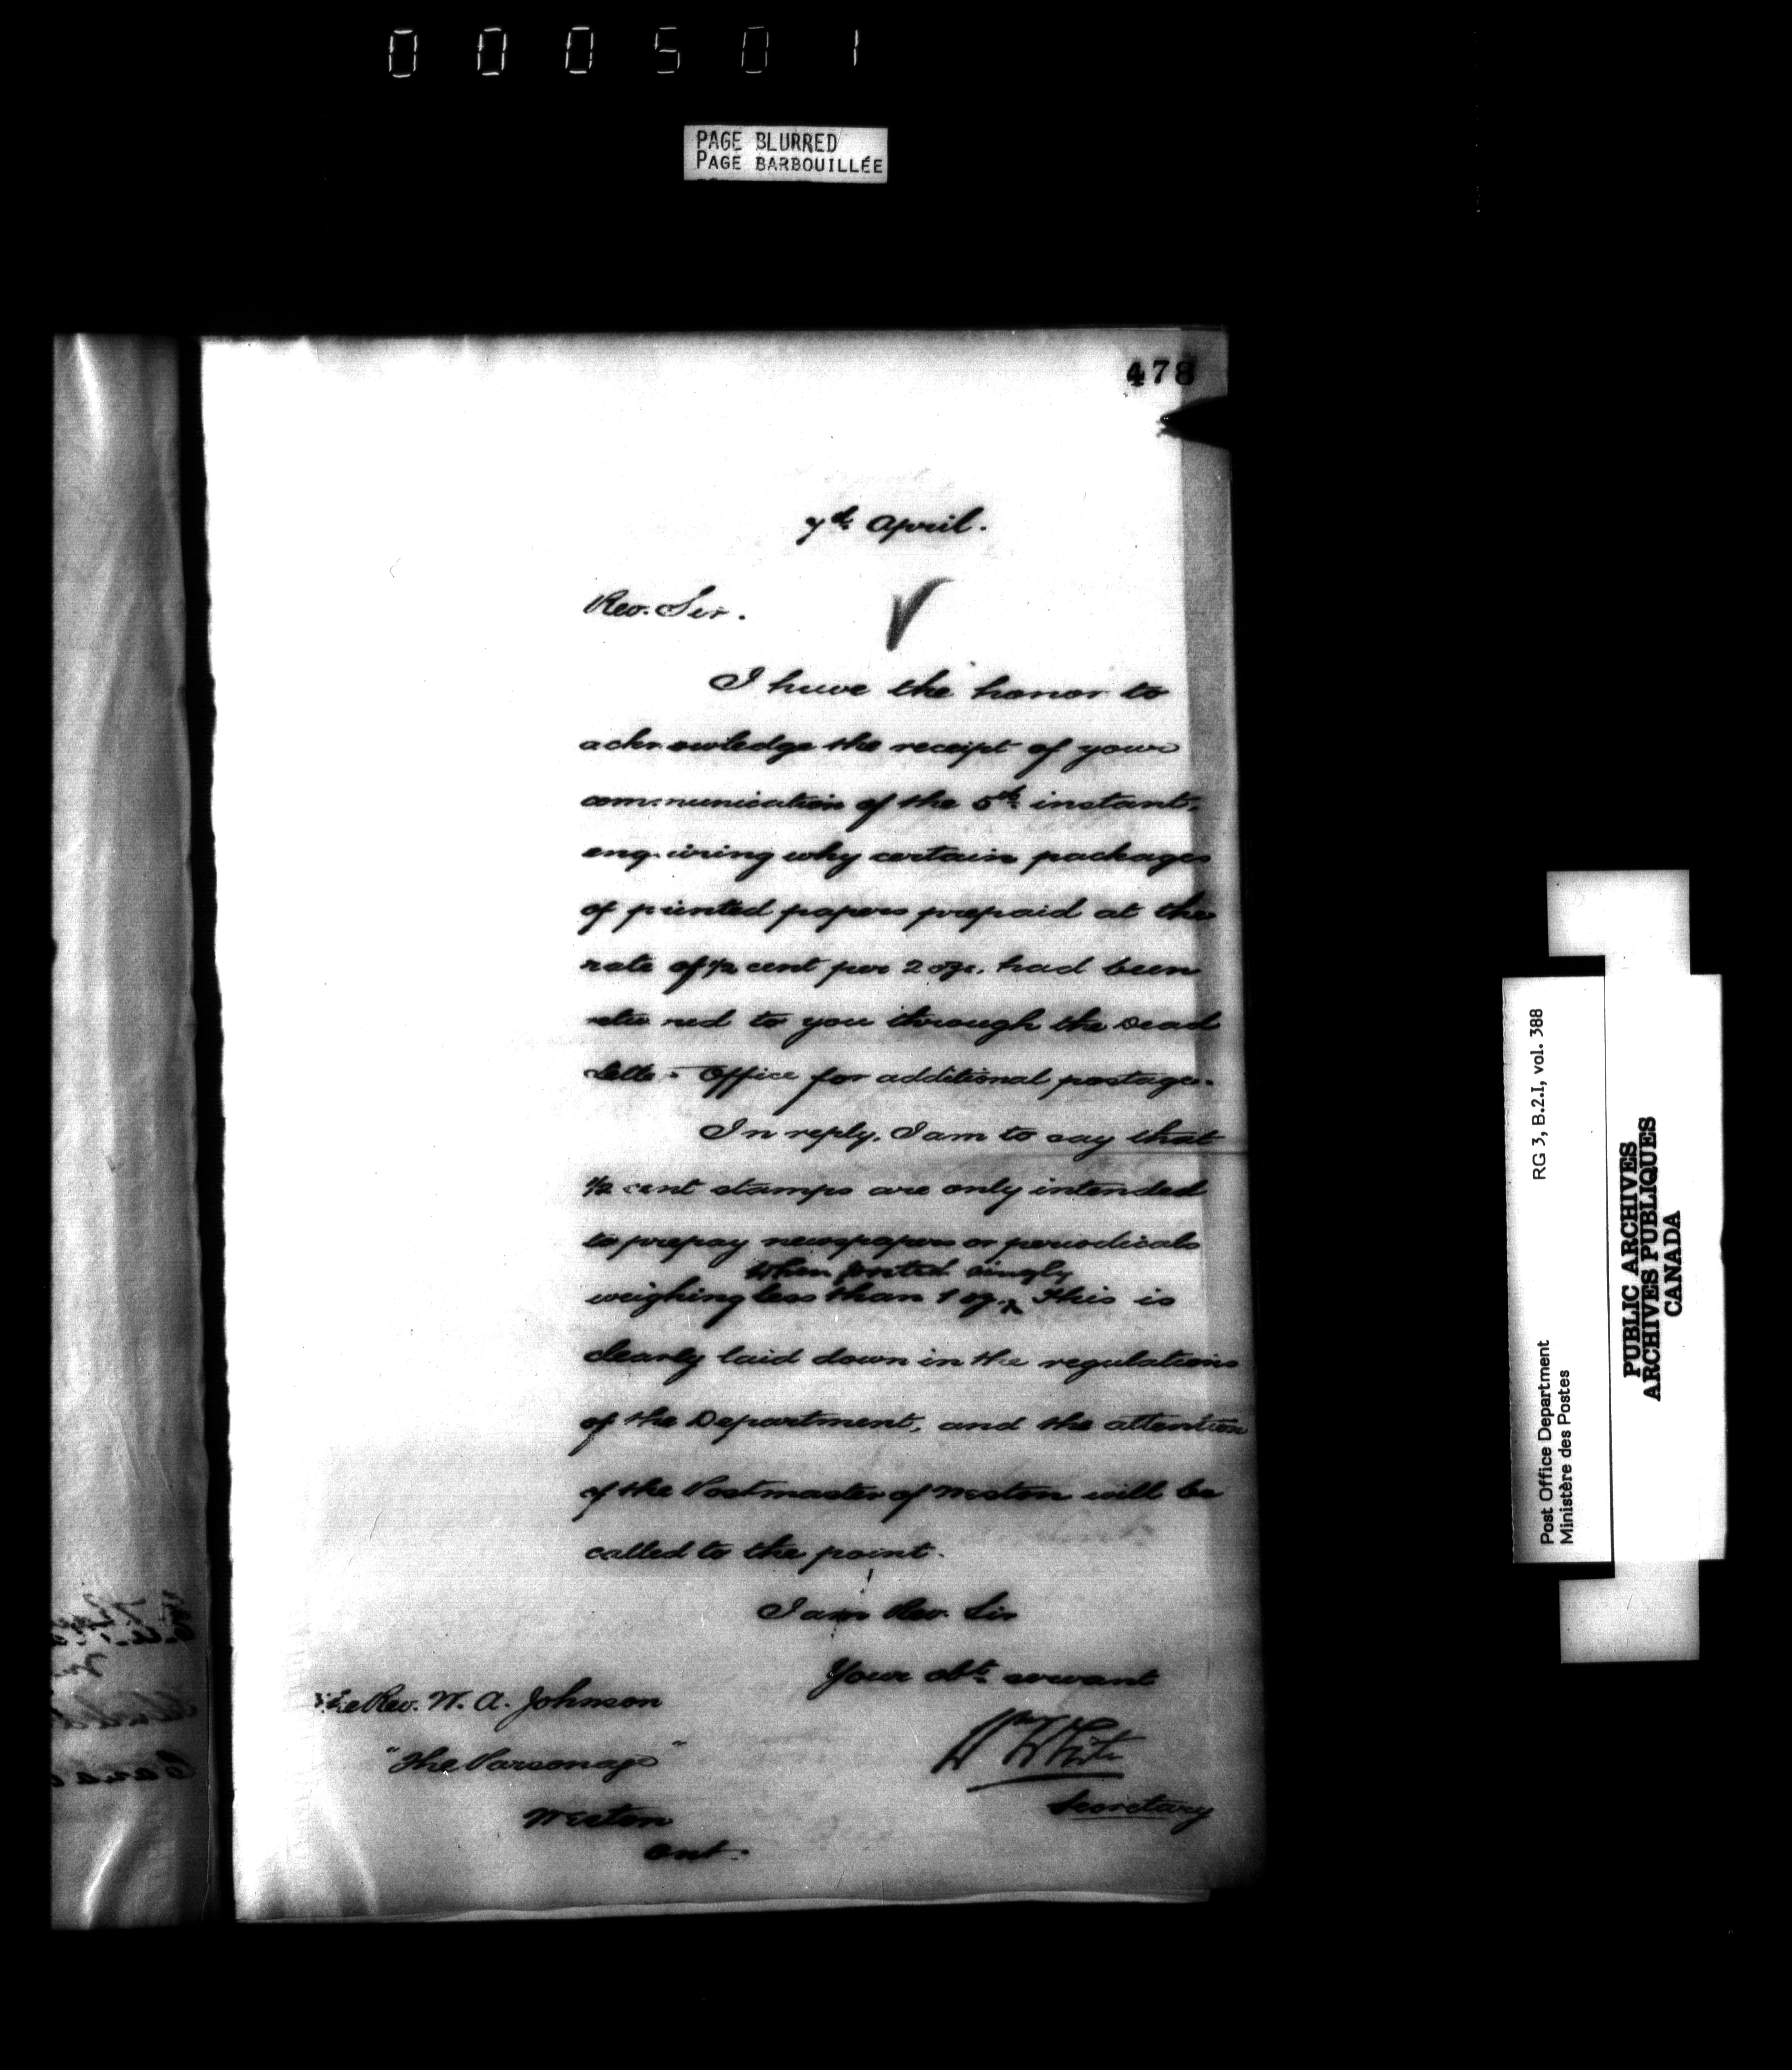 000501
PAGE BLURRED
PAGE BARBOUILLÉE
478
7th April.
Rev. Sir.
I have the honor to
acknowledge the receipt of your
communication of the 5th instant,
enquiring why certain packages
of printed papers prepaid at the
rate of ½ cent per 2 ozs. had been
returned to you through the Dead
Letter Office for additional postage.
In reply, I am to say that
½ cent stamps are only intended
to prepay newspapers or periodicals
when posted singly
weighing less than 1 oz. ^ This is
clearly laid down in the regulations
of the Department, and the attention
of the Postmaster of Weston will be
called to the point.
I am Rev. Sir
Your obt. servant
Wm White
Secretary
The Rev. W. A. Johnson
"The Parsonage"
Weston
Ont.
Post Office Department RG 3, B.2.I, vol. 388
Ministère des Postes
PUBLIC ARCHIVES
ARCHIVES PUBLIQUES
CANADA